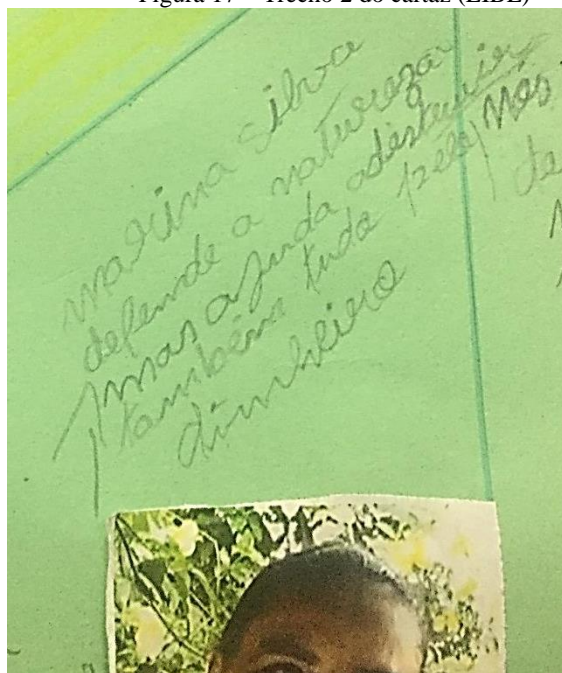 Figura 17 – Trecho 2 do cartaz (EIBE)
marina silva
defende a natureza
mas ajuda a destruir
também tudo pelo
dinheiro
Nós
de